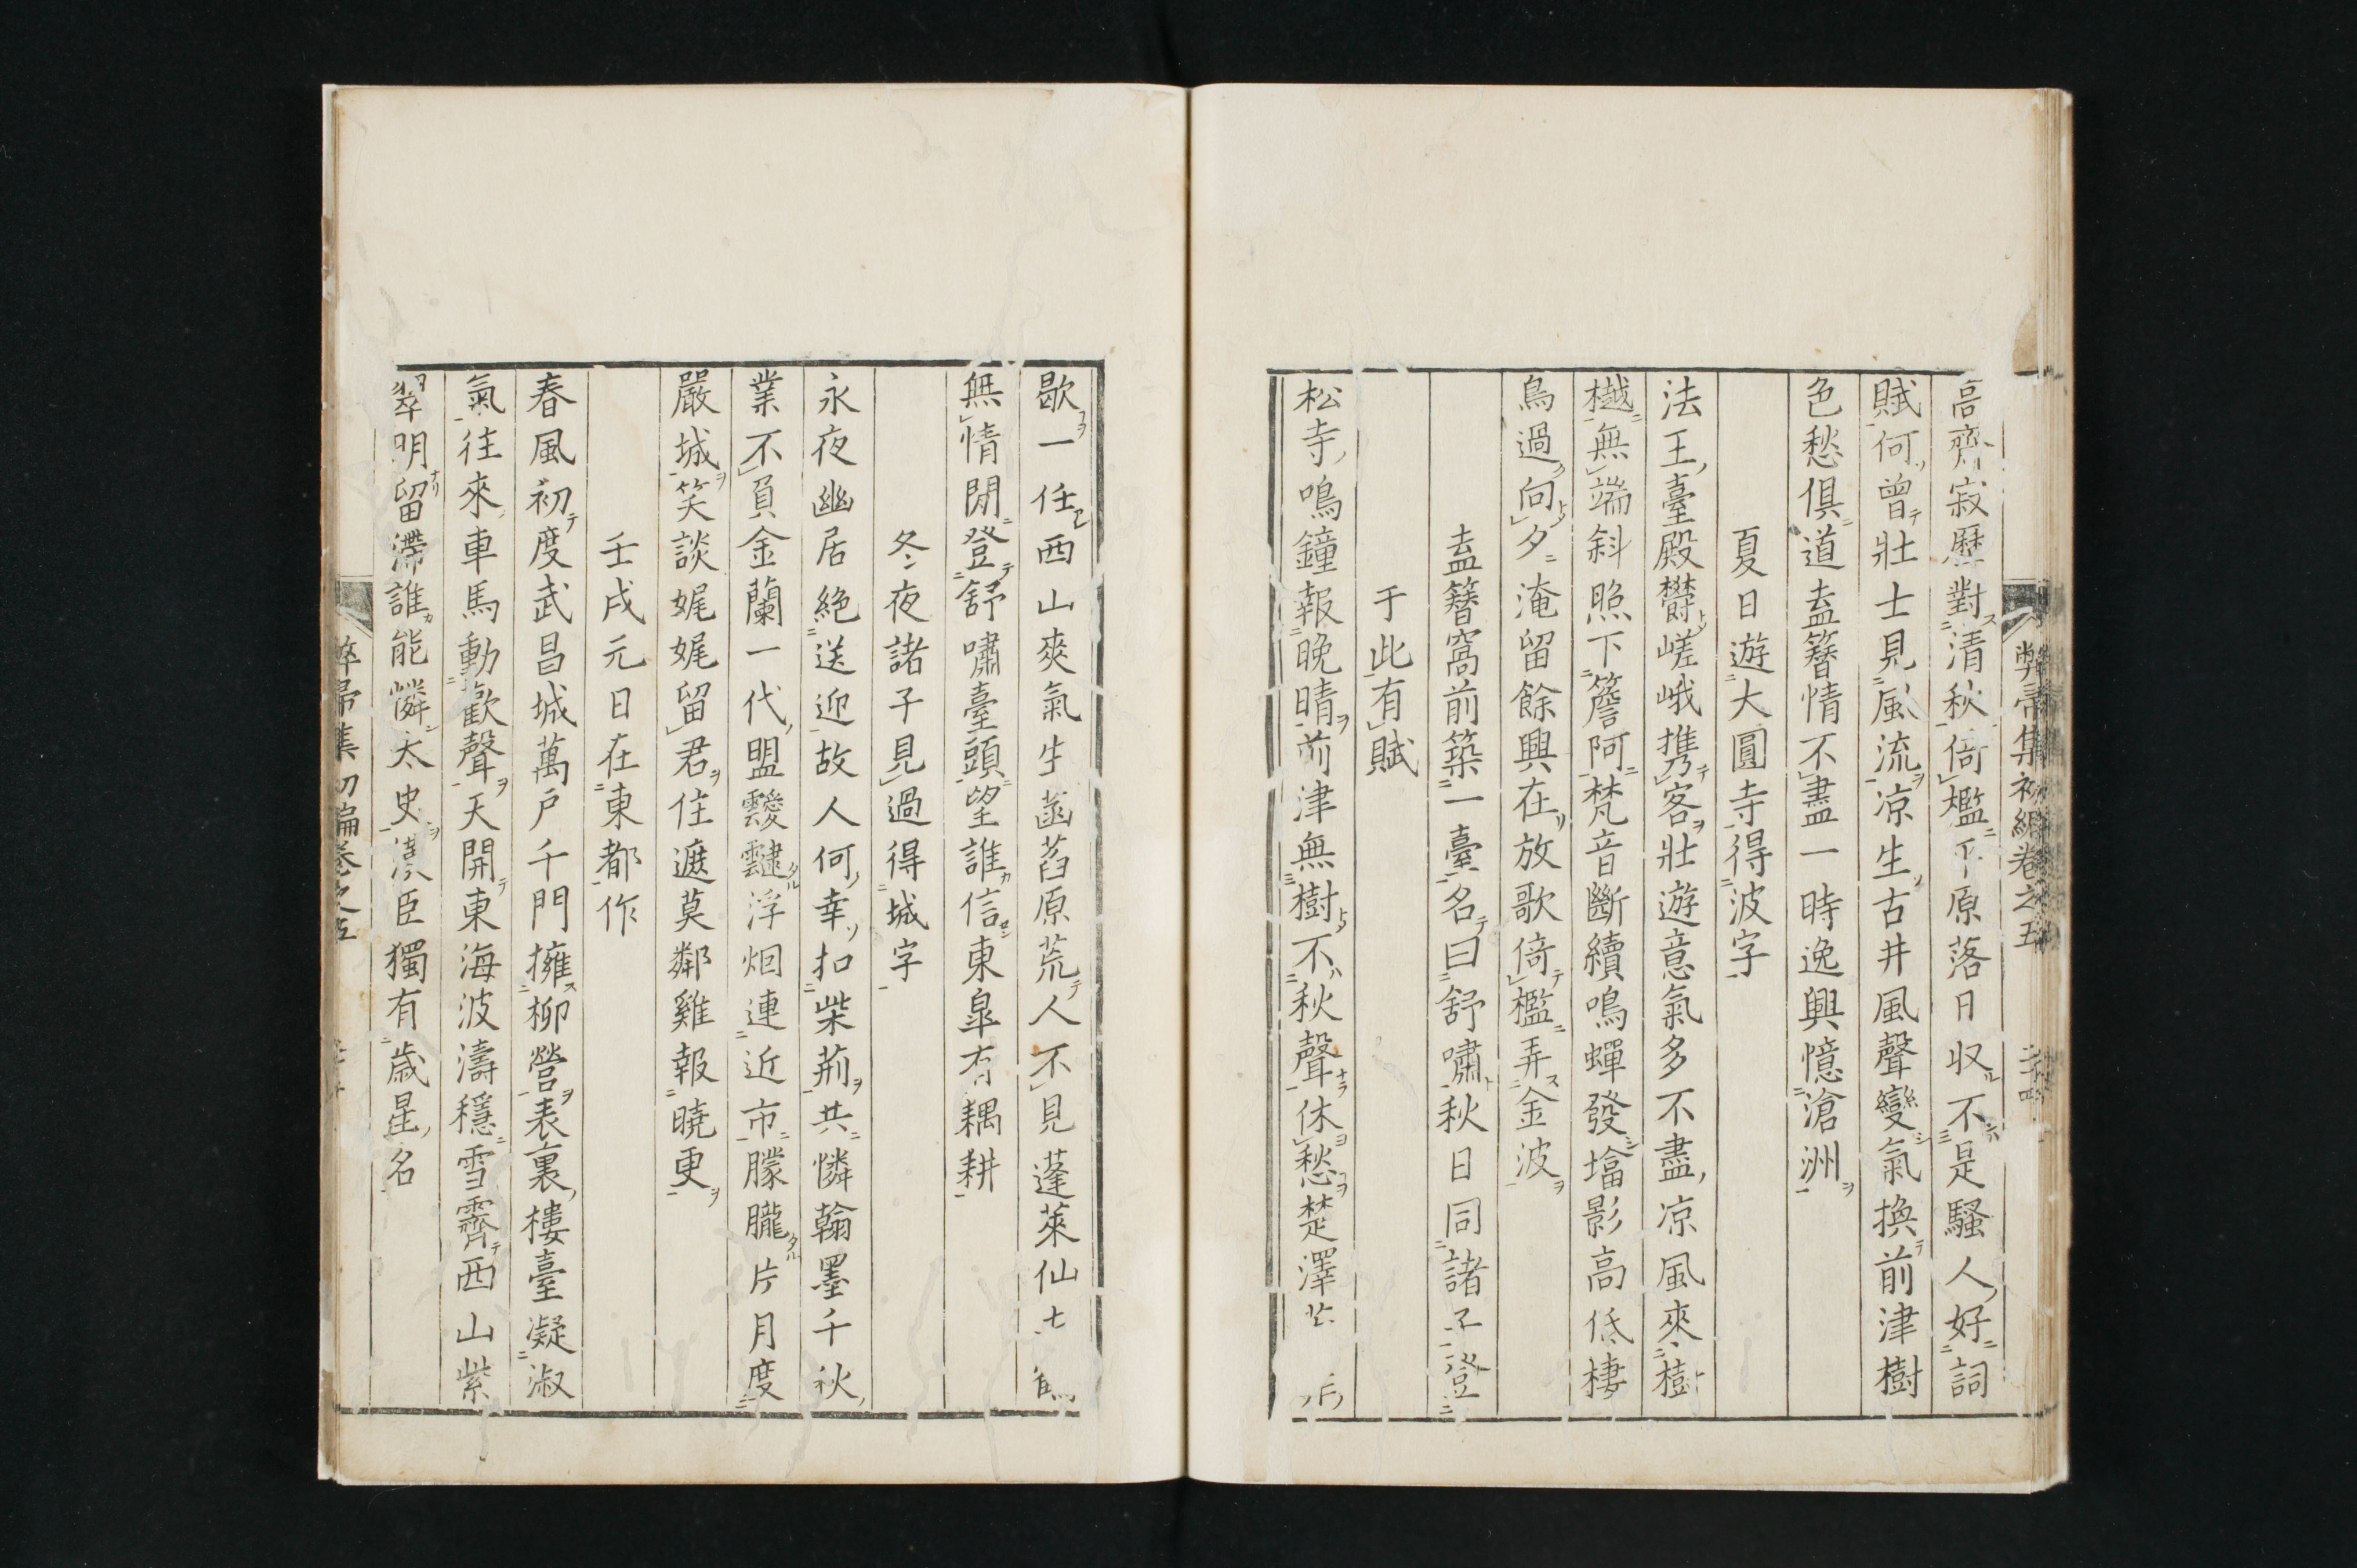 弊帚集初編卷之五
高齊寂歷對清秋倚檻平原落日収不是騷人好詞
賦何曾壯士見風流凉生古井風聲變氣換前津樹
色愁俱道盍簪情不盡一時逸興憶滄洲
夏日遊大圓寺得波字
法王臺殿欝嵯峨携客壯遊意氣多不盡凉風來樹
樾無端斜照下簷阿梵音斷續鳴蟬發墖影高低棲
鳥過向夕淹留餘興在放歌倚檻弄金波
盍簪窩前築一臺名曰舒嘯秋日同諸子登
于此有賦
松寺鳴鐘報晚晴前津無樹不秋聲休愁楚澤
歇一任西山爽氣生菡萏原荒人不見蓬萊仙
無情閒登舒嘯臺頭望誰信東皐有耦耕
冬夜諸子見過得城字
永夜幽居絶送迎故人何幸扣柴荊共憐翰墨千秋
業不負金蘭一代盟靉靆浮烟連近市朦朧片月度
嚴城笑談娓娓留君住遮莫鄰雞報曉更
壬戌元日在東都作
春風初度武昌城萬戸千門擁柳營表裏樓臺凝淑
氣往來車馬動歡聲天開東海波濤穩雪霽西山紫
翠明留滯誰能憐太史臣獨有歳星名
弊帚集初編卷之五